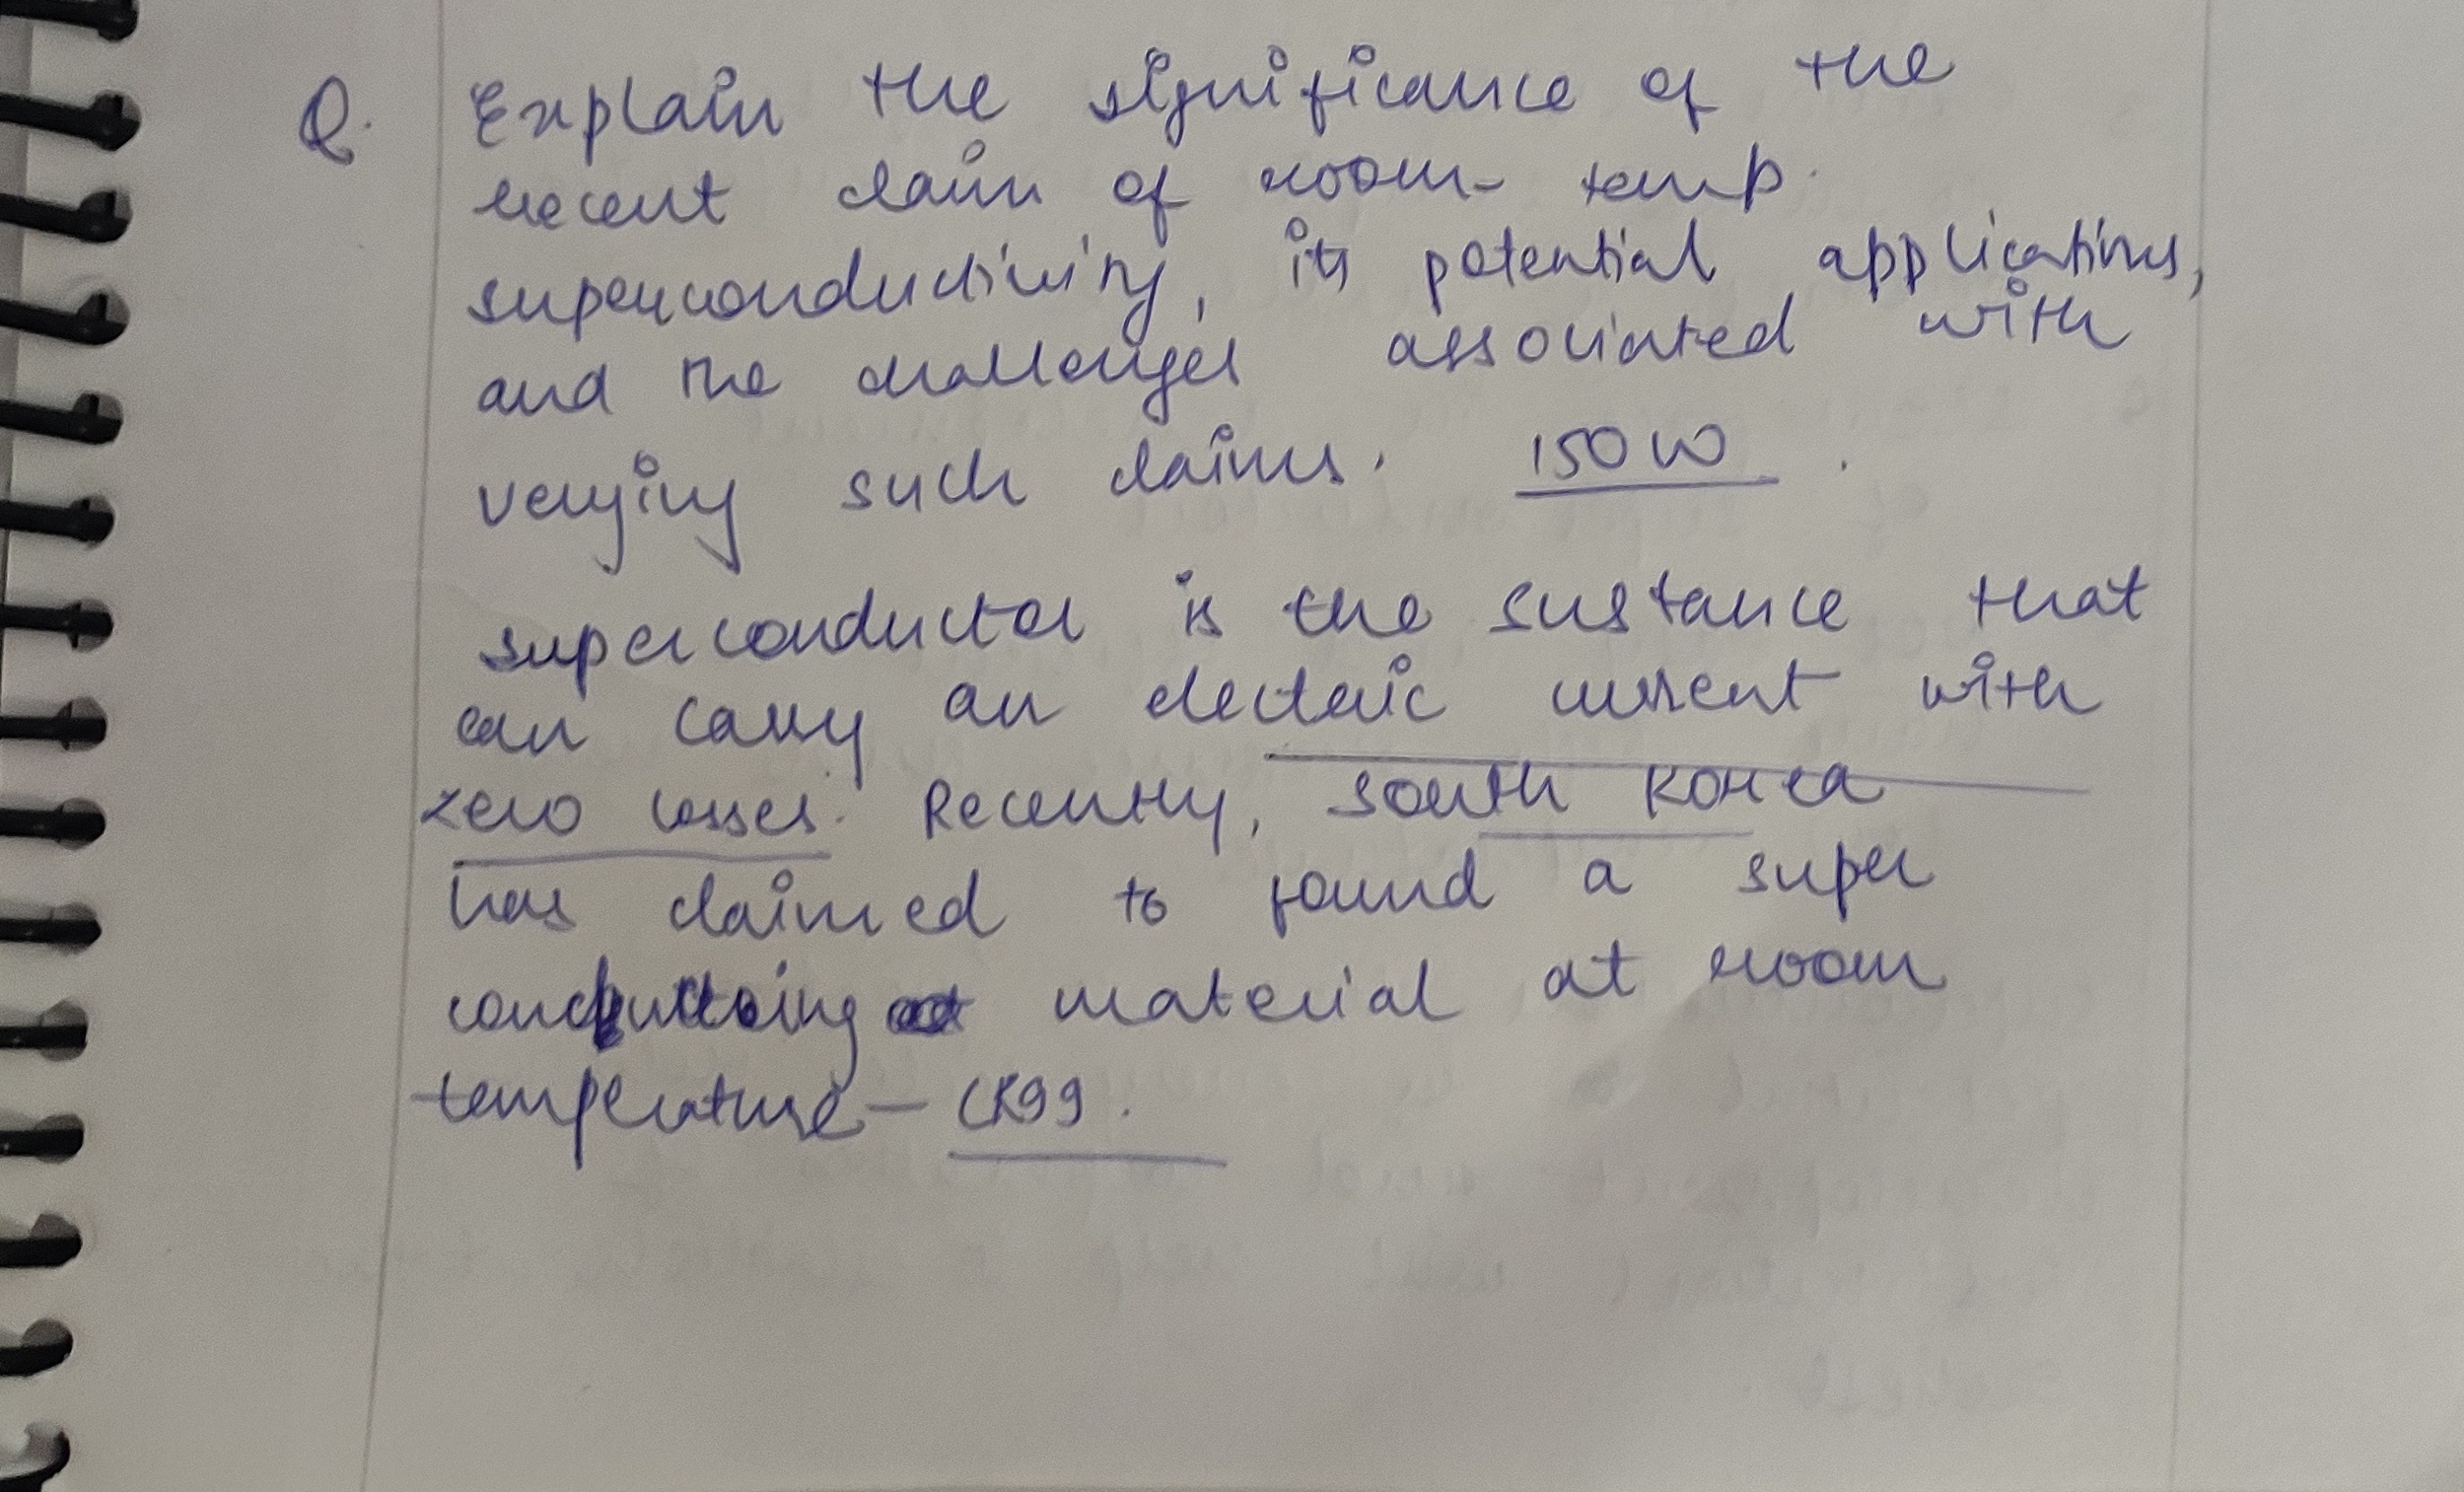 Q. Explain the significance of the
recent claim of room- temp.
superconductivity, its potential applications,
and the challenges associated with
verying such claims. 150 W.
superconductor is the sustance that
can carry an electric current with
zero losses. Recently, South Korea
has claimed to found a super
conducting material at room
temperature - LK99.